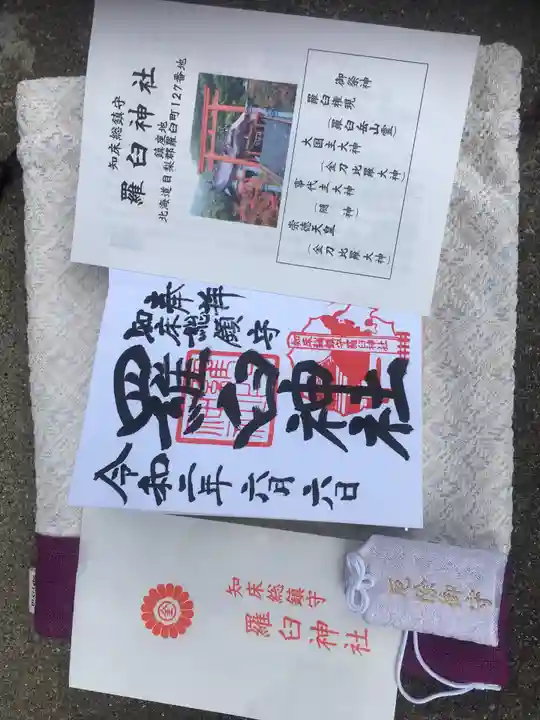 知床総鎮守
羅臼神社
鎮座地
北海道目梨郡羅臼町127番地
御祭神
羅臼権現
(羅臼岳山霊)
大国主大神
(金刀比羅大神)
事代主大神
崇徳天皇
(金刀比羅大神)
奉拝
知床総鎮守
羅臼神社
知床総鎮守羅臼神社
令和二年六月六日
金
知床総鎮守
羅臼神社
厄除御守